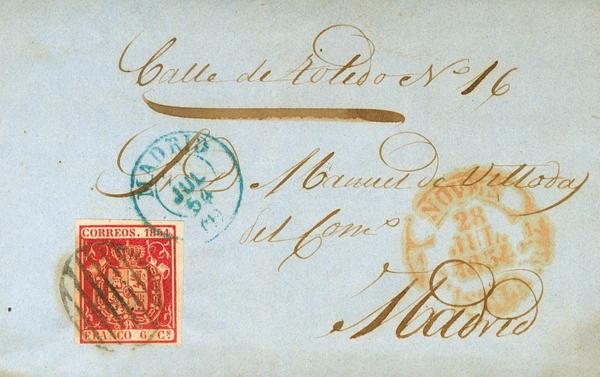 Calle de Toledo Nº 16
MADRID
JUL
54
(1)
S. D. Manuel de Villoda
del Comº
Madrid
NOVE
28
JUL.
1854
CORREOS. 1854
FRANCO 6 Cs.